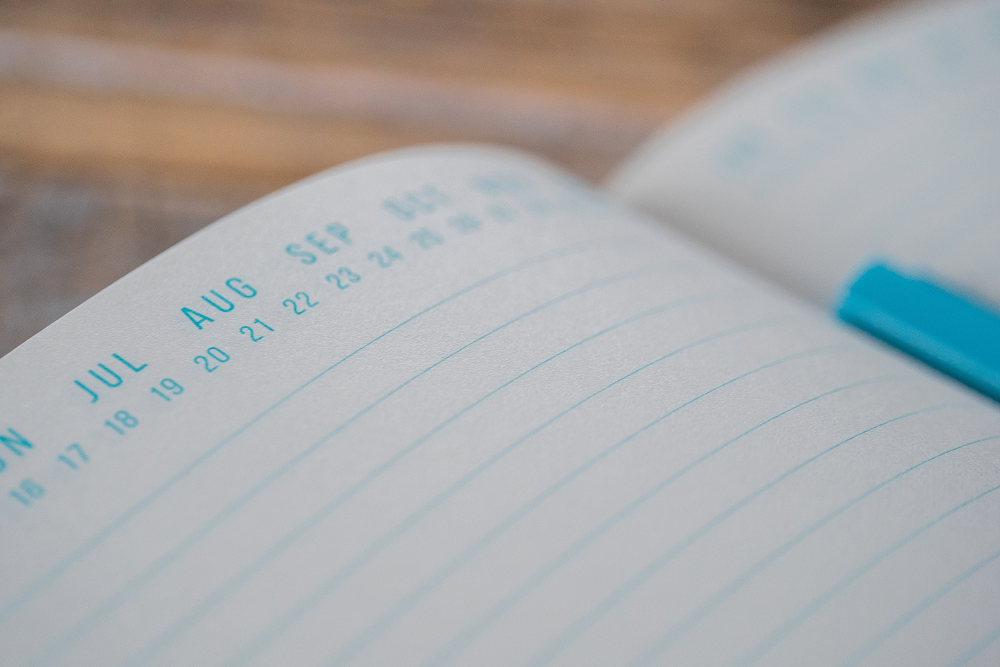 JUL AUG SEP OCT
16 17 18 19 20 21 22 23 24 25 26